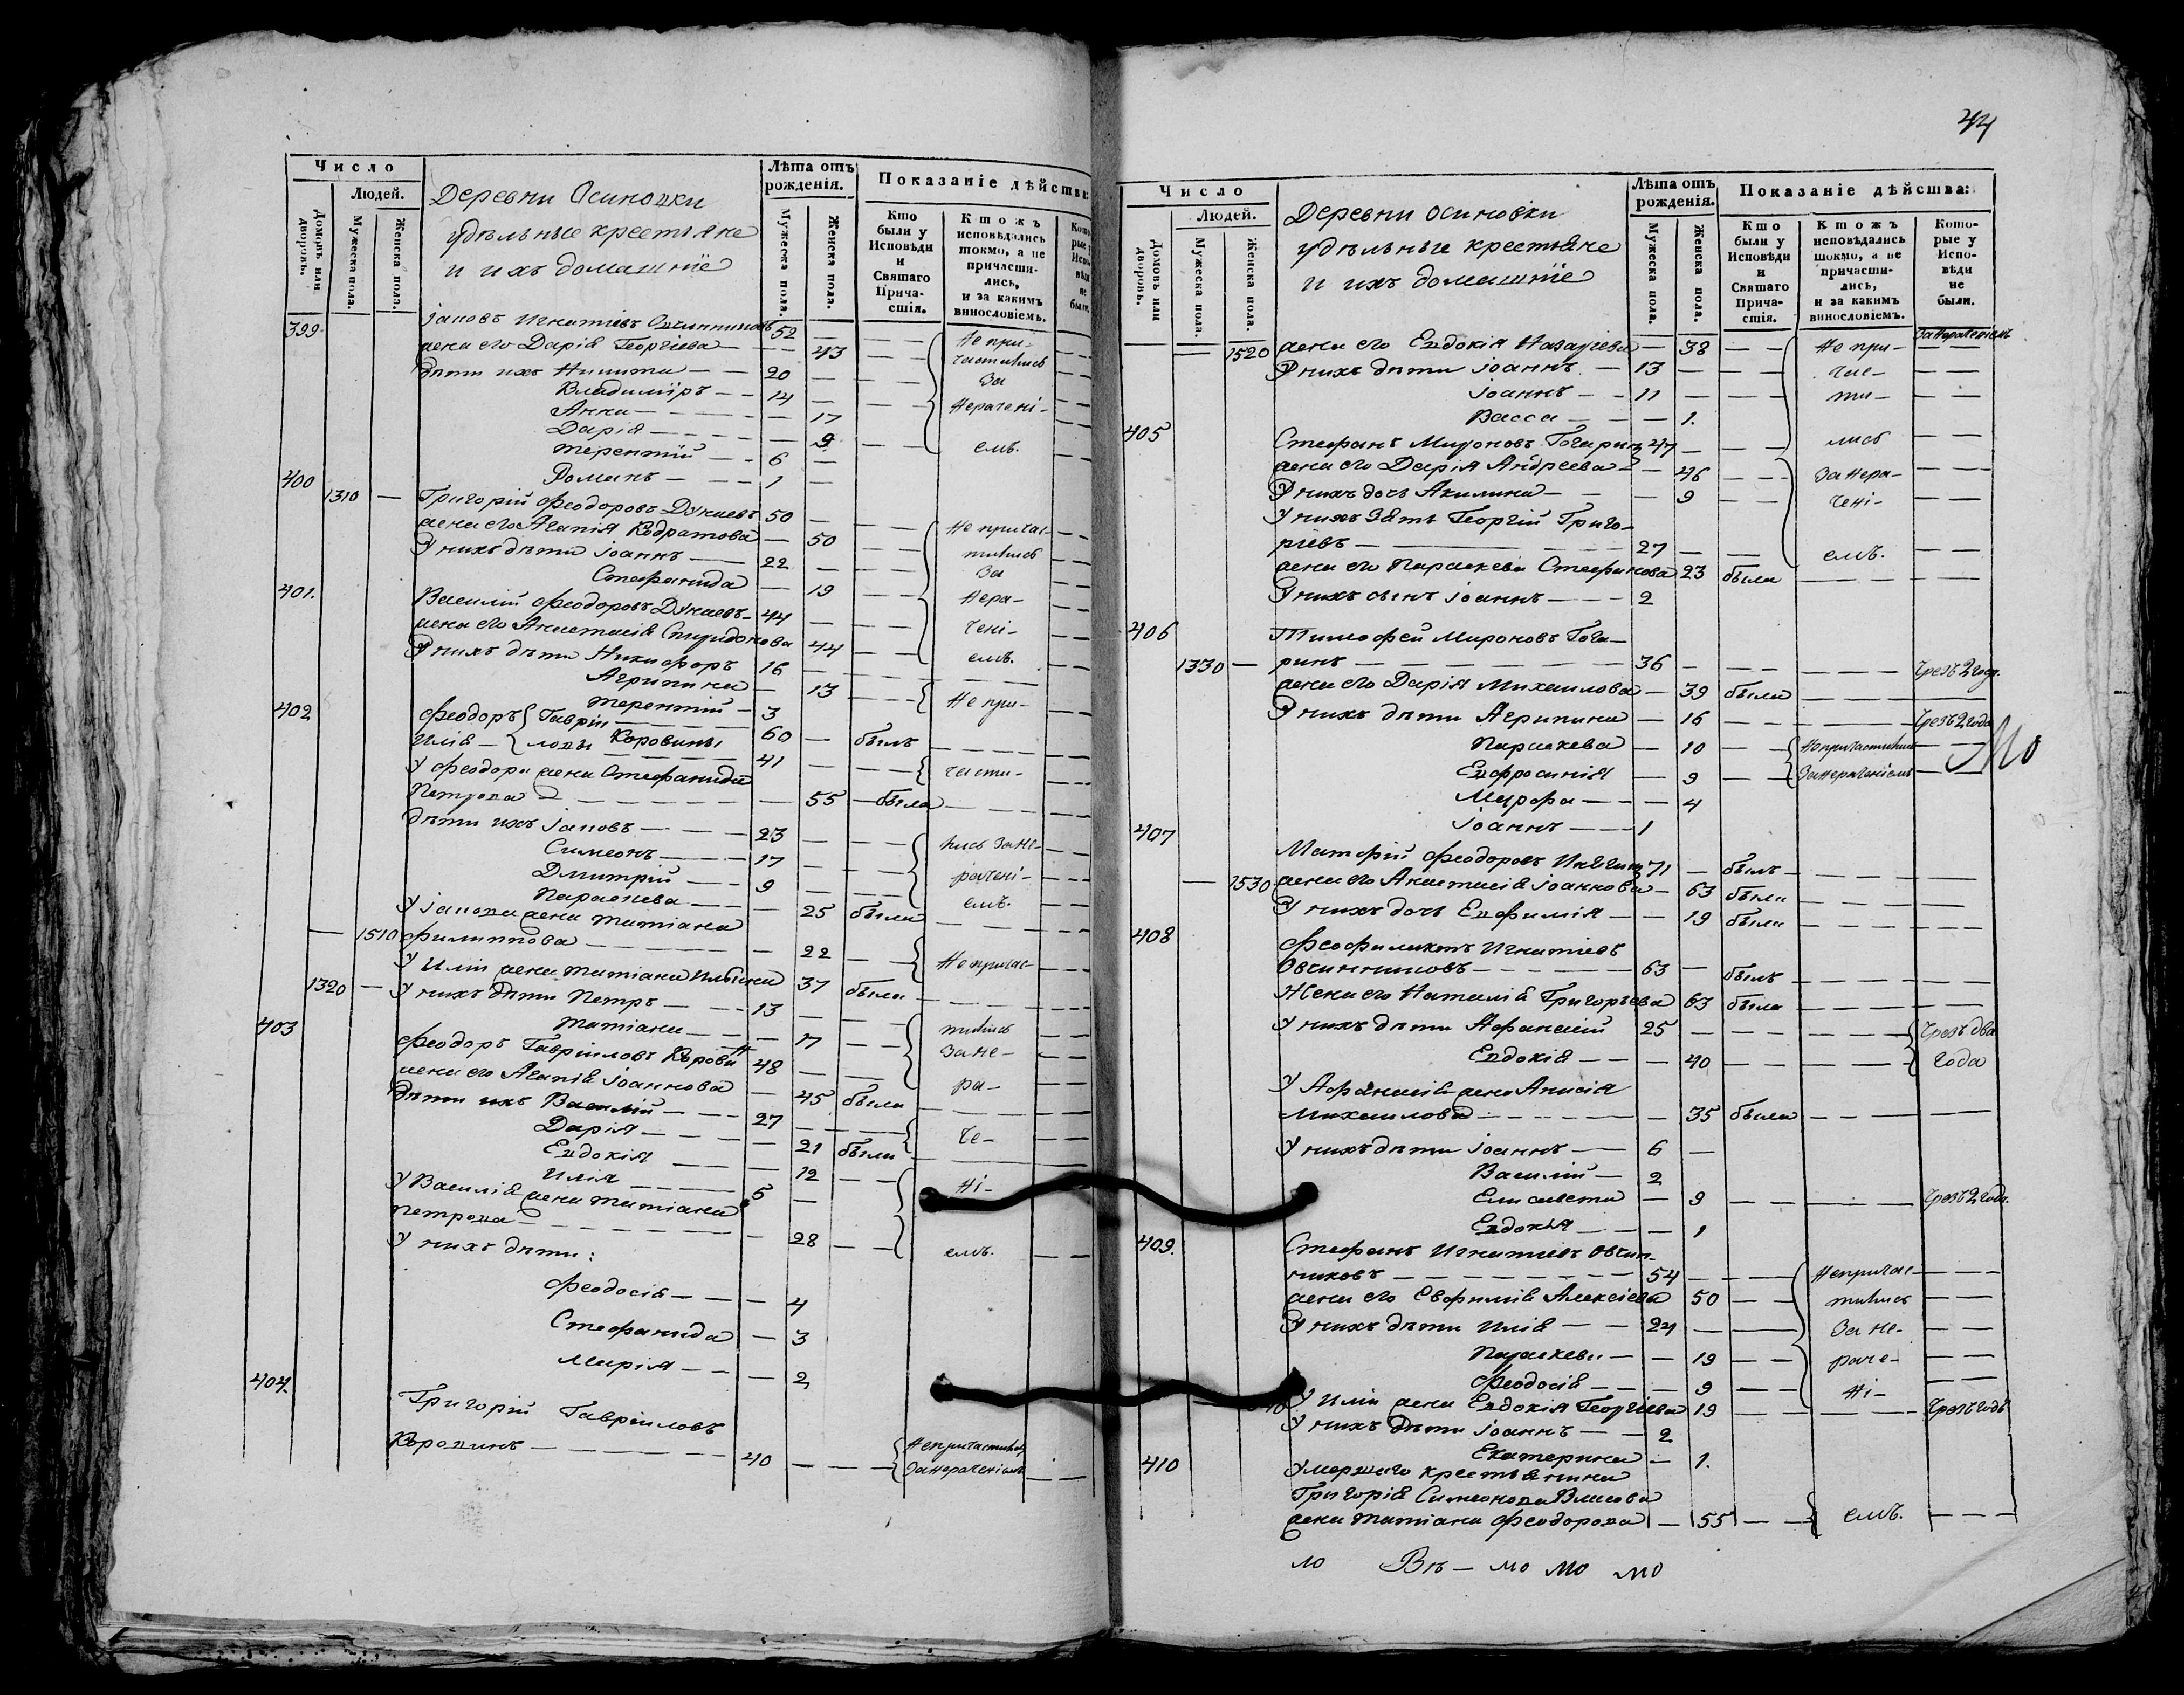 Число
Людей.
Домовъ или дворовъ.
Мужеска пола.
Женска пола.
Деревни Осиновки
удѣльные крестьяне
и ихъ домашніе
Лѣта отъ рожденія.
Мужеска пола.
Женска пола.
Показаніе дѣйства
Кто были у Исповѣди и Святаго Причастія.
Кто жъ исповѣдались токмо, а не причастились, и за какимъ винословіемъ.
399 Іаковъ Игнатіевъ Овчинниковъ 52 — Не при-
жена его Дарія Георгіева — 43 частились
дѣти ихъ Никита — 20 — За
Владиміръ — 14 — Нерачені-
Анна — 17
Дарія — 9 емъ.
Терентій — 6 —
400 Романъ — 1 —
1310 — Григорій Феодоровъ Дунаевъ 50 —
жена его Агапія Кодратова — 50 Не причас-
У нихъ дѣти Іоаннъ — 22 — тились
Стефанида — 19 За
401. Василій Феодоровъ Дунаевъ 44 — Нера-
жена его Анастасія Спиридонова 44 чені-
У нихъ дѣти Никифоръ 16 емъ.
Агрипина — 13 Не при-
Терентій — 3
402 Феодоръ { Гавріи- 60 — былъ
Илія — { ловы Коровины 41 — части-
У Феодора жена Стефанида
Петрова — 55 — была
дѣти ихъ Іаковъ — 23 —
Симеонъ — 17 — лись За не-
Дмитрій — 9 — рачені-
Параскева — 25 была емъ.
У Іакова жена Татіана
1510 Филиппова — 22 — Не причас-
У Иліи жена Татіана Ильина 37 была
1320 — У нихъ дѣти Петръ — 13 —
Татіана — 17 — тились
403 Феодоръ Гавріиловъ Коровин 48 — За не-
жена его Агапія Іоаннова — 45 была ра-
Дѣти ихъ Василій — 27 —
Дарія — 21 были че-
Евдокія — 12 —
Илія — 5 — ні-
У Василія жена Татіана
Петрова — 28 — емъ.
У нихъ дѣти:
Феодосія — 4
Стефанида — 3
Марія — 2
404. Григорій Гавріиловъ
Коровинъ — 40 — Не причастилсь
За нерачені емъ
44
Число
Людей.
Домовъ или дворовъ.
Мужеска пола.
Женска пола.
Деревни Осиновки
удѣльные крестьяне
и ихъ домашніе
Лѣта отъ рожденія.
Мужеска пола.
Женска пола.
Показаніе дѣйства:
Кто были у Исповѣди и Святаго Причастія.
Кто жъ исповѣдались токмо, а не причастились, и за какимъ винословіемъ.
Которые у Исповѣди не были.
За нераченіемъ
— 1520 жена его Евдокія Назарьева — 38 — Не при-
У нихъ дѣти Іоаннъ — 13 — час-
Іоаннъ — 11 — ти-
Васса — 1.
405 Стефанъ Мироновъ Гагаринъ 47 — лись
жена его Дарія Андреева — 46 За нера-
У нихъ дочь Акилина — 9 чені-
У нихъ Зять Георгій Григо-
ріевъ — 27 — емъ.
жена его Параскева Стефанова 23 была
У нихъ сынъ Іоаннъ — 2
406 Тимофей Мироновъ Гага-
1330 — ринъ — 36 — Чрезъ 2 год.
жена его Дарія Михаилова — 39 была
У нихъ дѣти Агрипина — 16 — Чрезъ 2 года
Параскева — 10 — Не причастились
Евфросинія — 9 — За нераченіемъ
Марфа — 4
Іоаннъ — 1
407 Матфій Феодоровъ 71 — былъ
— 1530 жена его Анастасія Іоаннова — 63 была
У нихъ дочь Евфимія — 19 была
408 Феофилактъ Игнатіевъ
Овчинниковъ — 63 — былъ
Жена его Наталія Григорьева 63 была
У нихъ дѣти Афанасій 25 — Чрезъ два
Евдокія — 40 — года
У Афанасія жена Анисія
Михаилова — 35 была
У нихъ дѣти Іоаннъ — 6 —
Василій — 2
Елисавета — 9 — Чрезъ 2 года.
Евдокія — 1
409. Стефанъ Игнатіевъ Овчин-
никовъ — 54 — Не причас-
жена его Евфимія Алексіева 50 — тились
У нихъ дѣти Илія — 24 — За не-
Параскева — 19 — раче-
Феодосія — 9 — ні-
У Иліи жена Евдокія Георгіева 19 — Чрезъ годъ
У нихъ дѣти Іоаннъ — 2
Екатерина — 1.
410 Умершаго крестьянина
Григорія Симеонова Власова
жена Татіана Феодорова — 55 — емъ.
ло Въ — мо мо мо
Мо